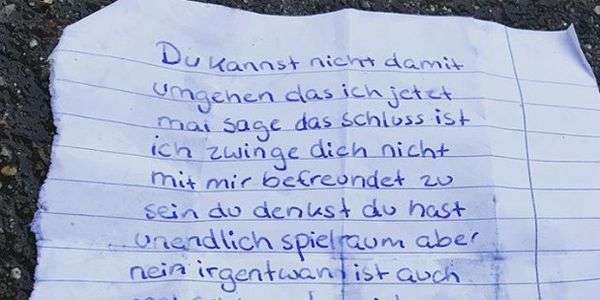 Du kannst nicht damit
umgehen das ich jetzt
mal sage das schluss ist
ich zwinge dich nicht
mit mir befreundet zu
sein du denkst du hast
unendlich spielraum aber
nein irgentwann ist auch